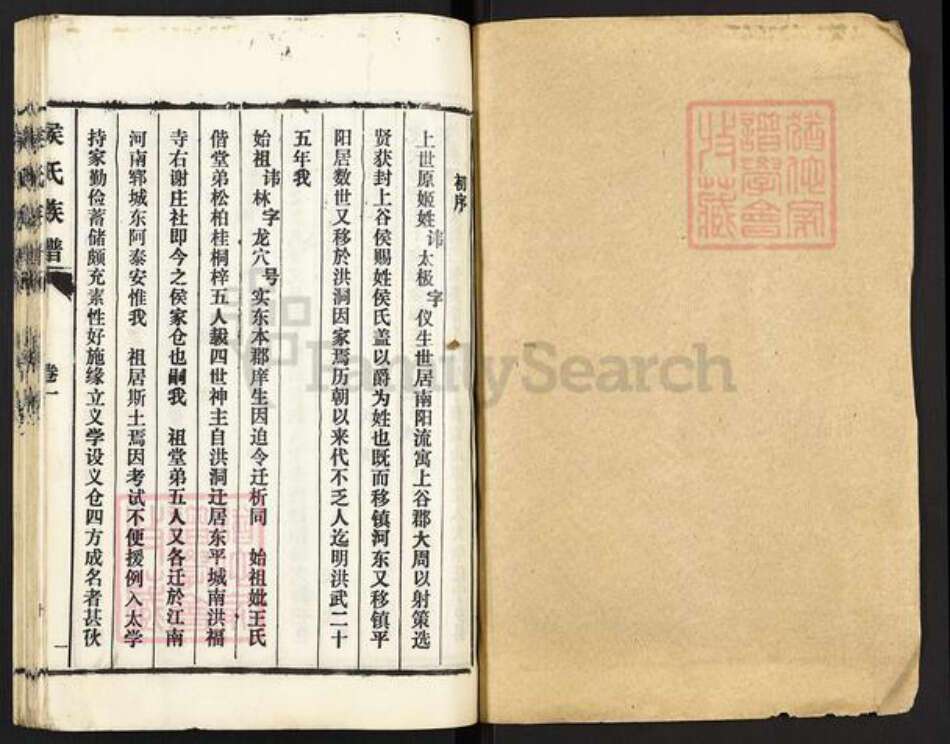 初序
上世原姬姓讳太极字仪生世居南阳流寓上谷郡大周以射策选
贤获封上谷侯赐姓侯氏盖以爵为姓也既而移镇河东又移镇平
阳居数世又移於洪洞因家焉历朝以来代不乏人迄明洪武二十
五年我
始祖讳林字龙穴号实东本郡庠生因迫令迁析同 始祖妣王氏
偕堂弟松柏桂桐梓五人載四世神主自洪洞迁居东平城南洪福
寺右谢庄社即今之侯家仓也嗣我 祖堂弟五人又各迁於江南
河南郓城东阿泰安惟我 祖居斯土焉因考试不便援例入太学
持家勤俭蓄储颇充素性好施缘立义学设义仓四方成名者甚伙
侯氏族谱
卷一
一
猶他家
譜學會
收藏
FamilySearch